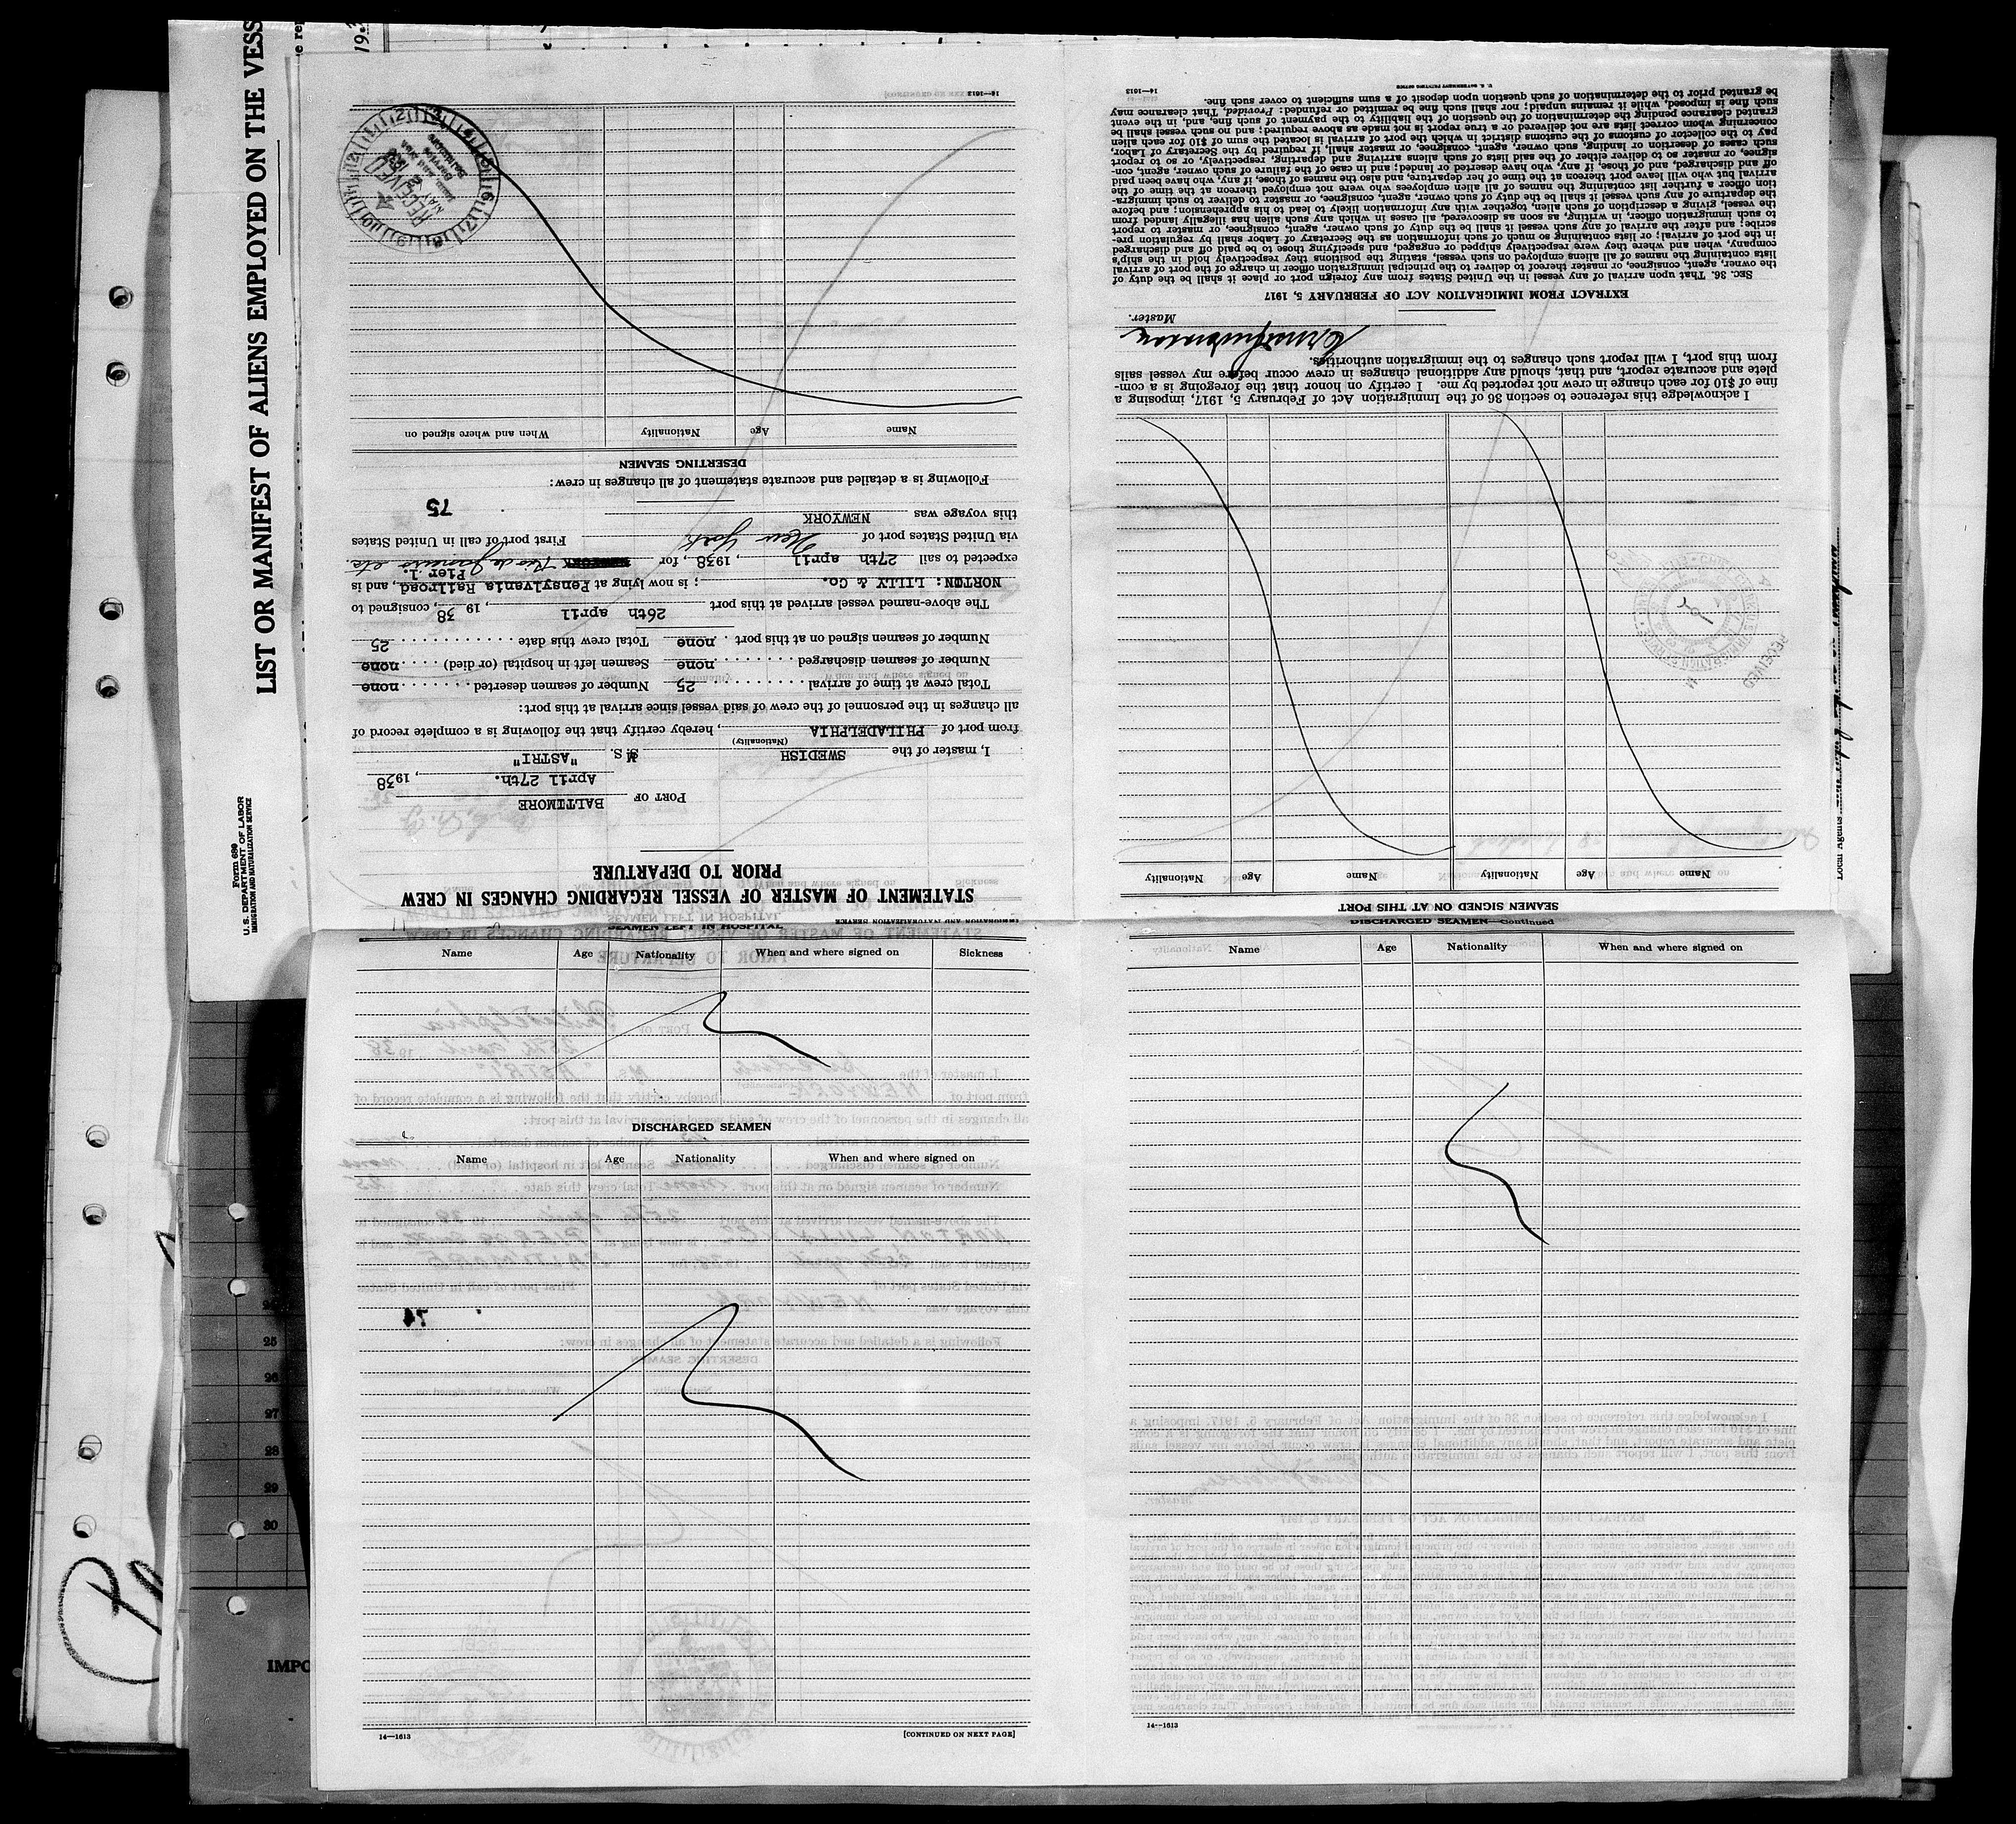 LIST OR MANIFEST OF ALIENS EMPLOYED ON THE VESS
Form 689
U. S. DEPARTMENT OF LABOR
IMMIGRATION AND NATURALIZATION SERVICE
IMMIGRATION AND NATURALIZATION SERVICE
STATEMENT OF MASTER OF VESSEL REGARDING CHANGES IN CREW
PRIOR TO DEPARTURE
PORT OF BALTIMORE
April 27th. , 1938
I, master of the SWEDISH M.S. "ASTRI"
(Nationality)
from port of PHILADELPHIA , hereby certify that the following is a complete record of
all changes in the personnel of the crew of said vessel since arrival at this port:
Total crew at time of arrival 25 Number of seamen deserted none
Number of seamen discharged none Seamen left in hospital (or died) none
Number of seamen signed on at this port none Total crew this date 25
The above-named vessel arrived at this port 26th april , 19 38 , consigned to
NORTON: LILLY & Co. ; is now lying at Pensylvania Railroad, and is
Pier 1.
expected to sail 27th april , 1938, for Rio de Janeiro etc.
via United States port of New York First port of call in United States
this voyage was NEWYORK
75
Following is a detailed and accurate statement of all changes in crew:
DESERTING SEAMEN
Name Age Nationality When and where signed on
RECEIVED
14—1613
SEAMEN SIGNED ON AT THIS PORT
Name Age Nationality Name Age Nationality
I acknowledge this reference to section 36 of the Immigration Act of February 5, 1917, imposing a
fine of $10 for each change in crew not reported by me. I certify on honor that the foregoing is a com-
plete and accurate report, and that, should any additional changes in crew occur before my vessel sails
from this port, I will report such changes to the immigration authorities.
Master.
EXTRACT FROM IMMIGRATION ACT OF FEBRUARY 5, 1917
SEC. 36. That upon arrival of any vessel in the United States from any foreign port or place it shall be the duty of
the owner, agent, consignee, or master thereof to deliver to the principal immigration officer in charge of the port of arrival
lists containing the names of all aliens employed on such vessel, stating the positions they respectively hold in the ship's
company, when and where they were respectively shipped or engaged, and specifying those to be paid off and discharged
in the port of arrival; or lists containing so much of such information as the Secretary of Labor shall by regulation pre-
scribe; and after the arrival of any such vessel it shall be the duty of such owner, agent, consignee, or master to report
to such immigration officer, in writing, as soon as discovered, all cases in which any such alien has illegally landed from
the vessel, giving a description of such alien, together with any information likely to lead to his apprehension; and before
the departure of any such vessel it shall be the duty of such owner, agent, consignee, or master to deliver to such immigra-
tion officer a further list containing the names of all alien employees who were not employed thereon at the time of the
arrival but who will leave port thereon at the time of her departure, and also the names of those, if any, who have been paid
off and discharged, and of those, if any, who have deserted or landed; and in case of the failure of such owner, agent, con-
signee, or master so to deliver either of the said lists of such aliens arriving and departing, respectively, or so to report
such cases of desertion or landing, such owner, agent, consignee, or master shall, if required by the Secretary of Labor,
pay to the collector of customs of the customs district in which the port of arrival is located the sum of $10 for each alien
concerning whom correct lists are not delivered or a true report is not made as above required; and no such vessel shall be
granted clearance pending the determination of the question of the liability to the payment of such fine, and, in the event
such fine is imposed, while it remains unpaid; nor shall such fine be remitted or refunded: Provided, That clearance may
be granted prior to the determination of such question upon deposit of a sum sufficient to cover such fine.
14—1613
U. S. GOVERNMENT PRINTING OFFICE
RECEIVED
Local Agents
SEAMEN LEFT IN HOSPITAL
Name Age Nationality When and where signed on Sickness
DISCHARGED SEAMEN
Name Age Nationality When and where signed on
14—1613 [CONTINUED ON NEXT PAGE]
DISCHARGED SEAMEN—Continued
Name Age Nationality When and where signed on
14—1613
25
26
27
28
29
30
IMPO